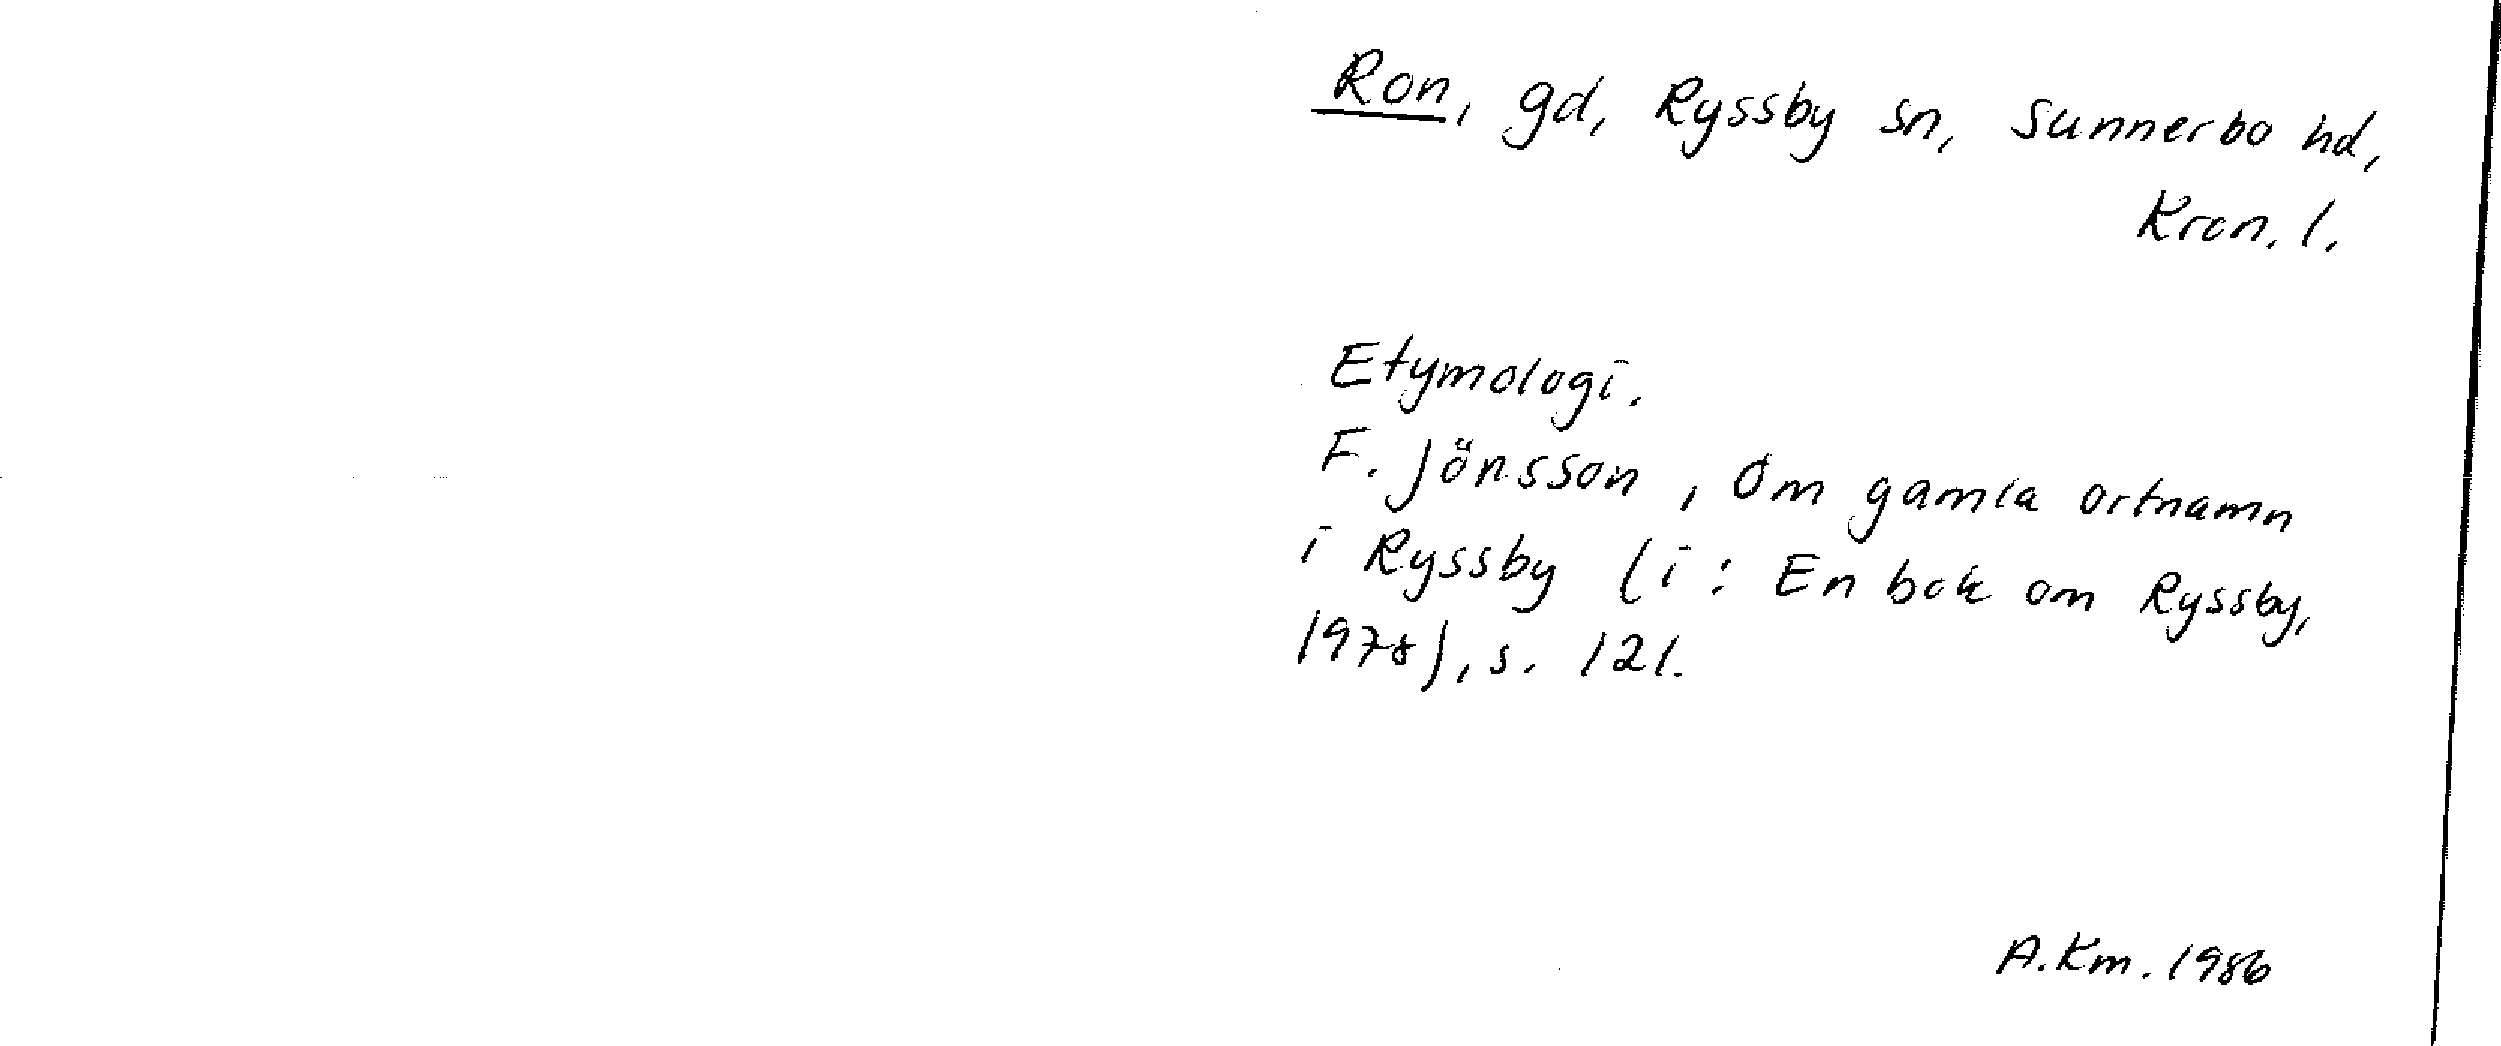 Ron, gd, Ryssby sn, Sunnerbo hd,
Kron. l.
Etymologi.
F. Jönsson, Om gamla ortnamn
i Ryssby (i: En bok om Ryssby,
1978), s. 121.
A.Km. 1986